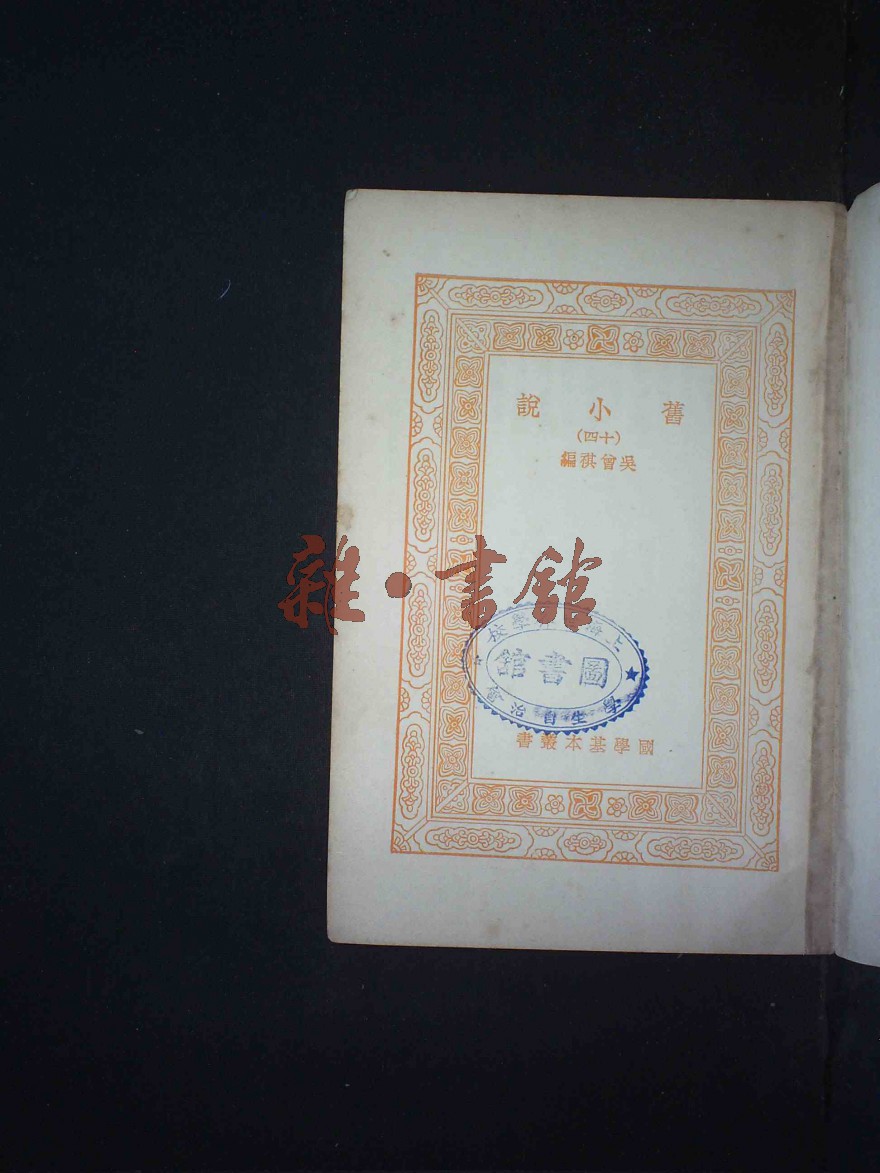 舊小說
(十四)
吳曾祺編
雜·書館
圖書館
學生自治會
國學基本叢書